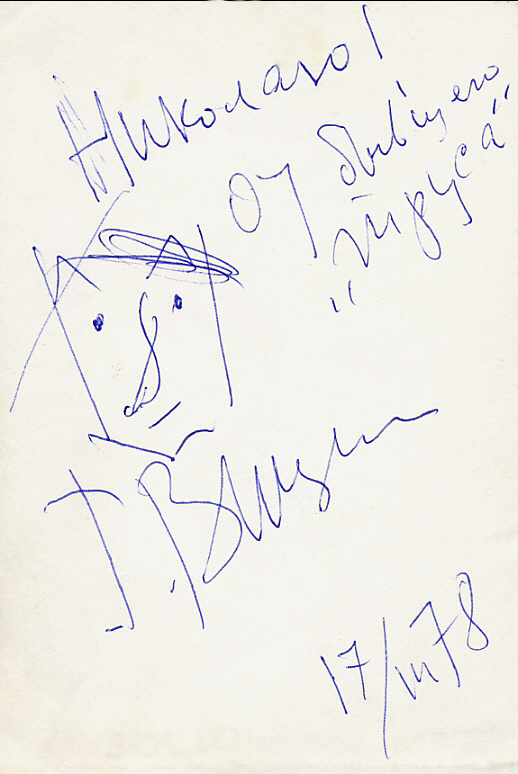 Николаю!
От бывшего
„Труса“
Г. Вицин
17/III 78